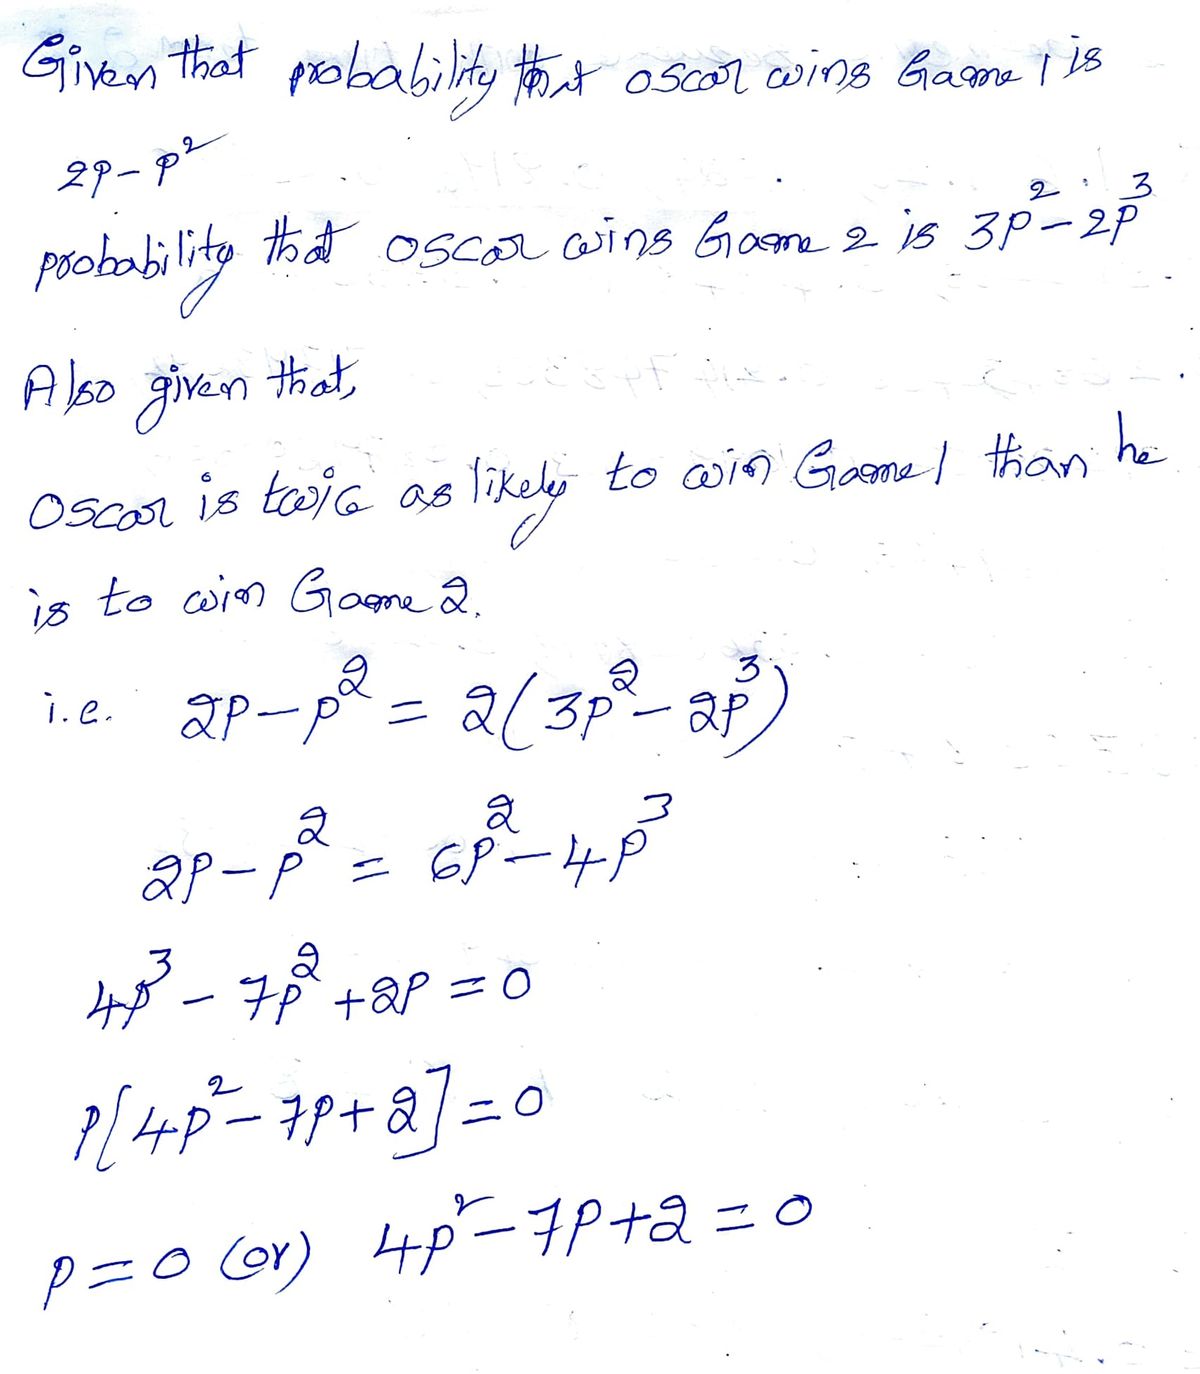 Given that probability that oscar wins Game 1 is
2p - p²
probability that oscar wins Game 2 is 3p² - 2p³
Also given that,
Oscar is twice as likely to win Game 1 than he
is to win Game 2.
i.e. 2p - p² = 2(3p² - 2p³)
2p - p² = 6p² - 4p³
4p³ - 7p² + 2p = 0
p[4p² - 7p + 2] = 0
p = 0 (or) 4p² - 7p + 2 = 0